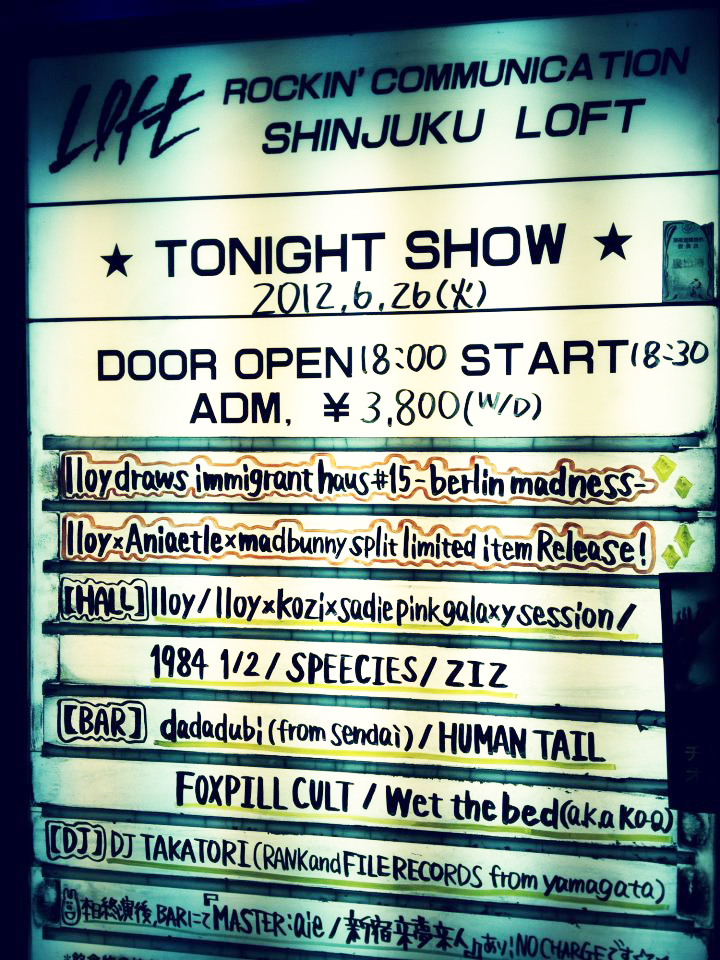 Loft ROCKIN' COMMUNICATION
SHINJUKU LOFT
★ TONIGHT SHOW ★
2012.6.26(火)
DOOR OPEN 18:00 START 18:30
ADM, ¥ 3,800(W/D)
lloy draws immigrant haus #15 -berlin madness-
lloy×Aniaetle×madbunny split limited item Release!
[HALL] lloy / lloy×kozi×sadie pink galaxy session /
1984 1/2 / SPEECIES / ZIZ
[BAR] dadadubi (from sendai) / HUMAN TAIL
FOXPILL CULT / Wet the bed (a.k.a KO-O)
[DJ] DJ TAKATORI (RANK and FILE RECORDS from yamagata)
終演後,BARにてMASTER:aie / 新宿来夢来人♫あり!NO CHARGEです